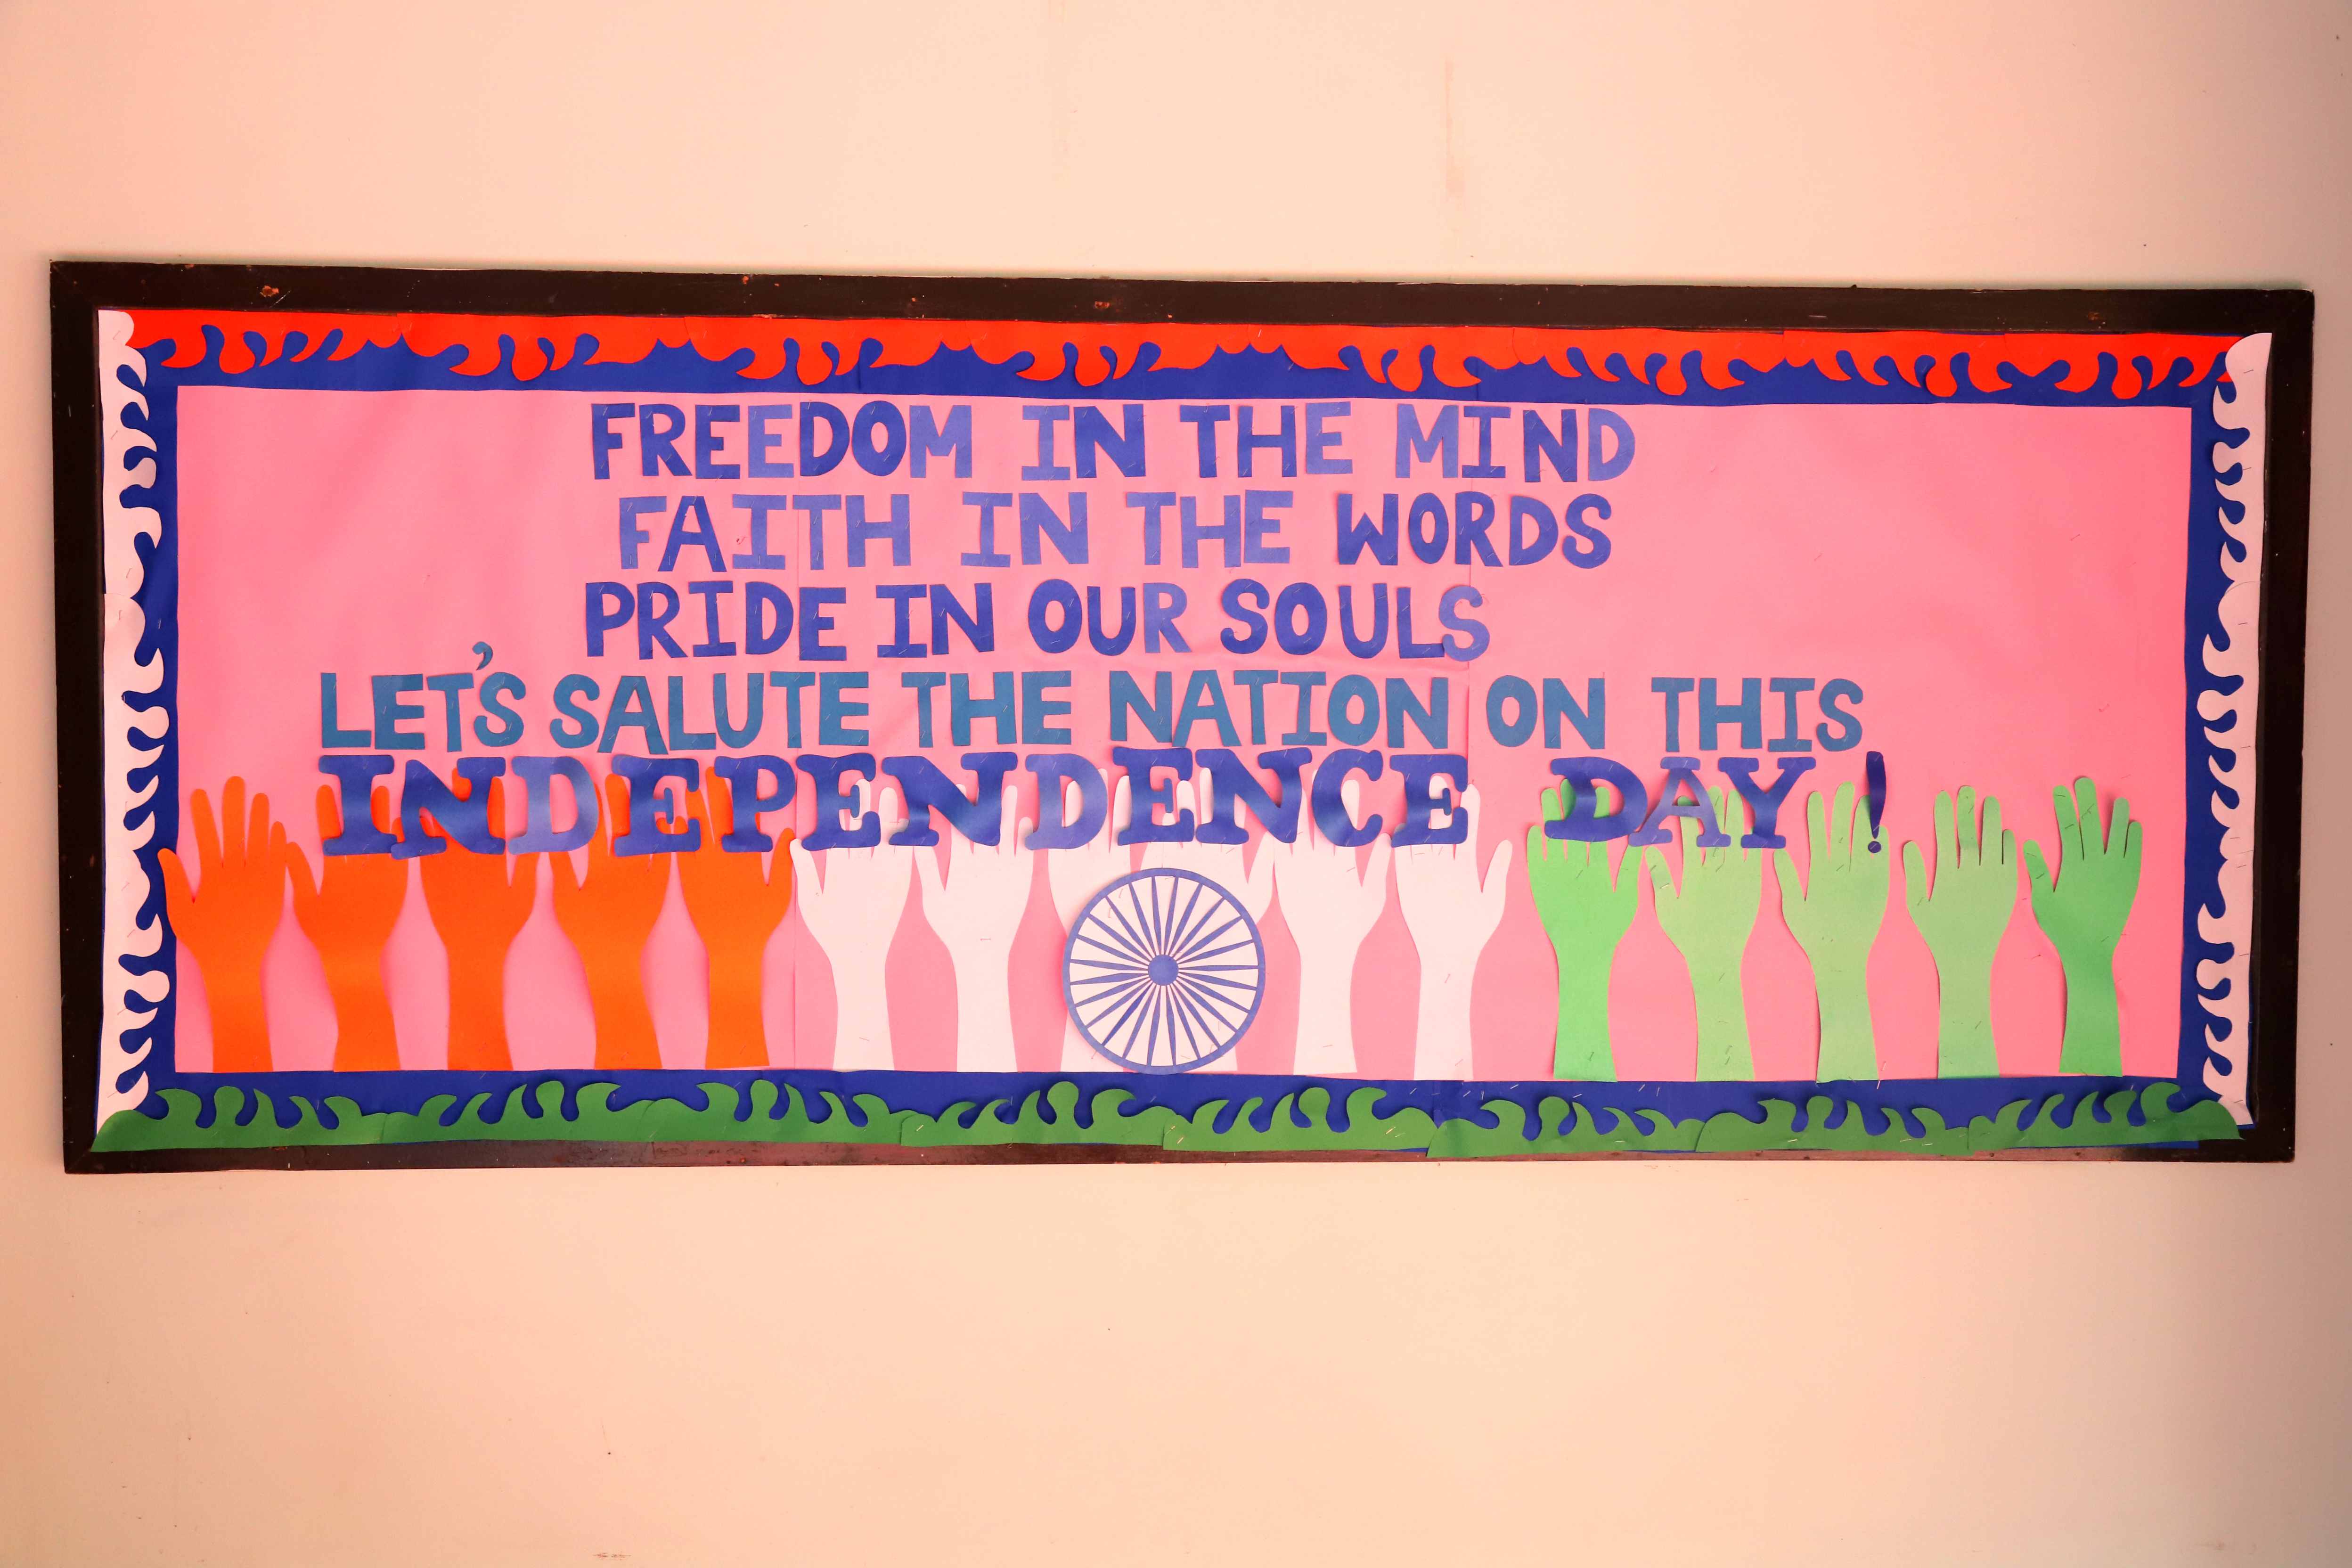 FREEDOM IN THE MIND
FAITH IN THE WORDS
PRIDE IN OUR SOULS
LET'S SALUTE THE NATION ON THIS
INDEPENDENCE DAY!